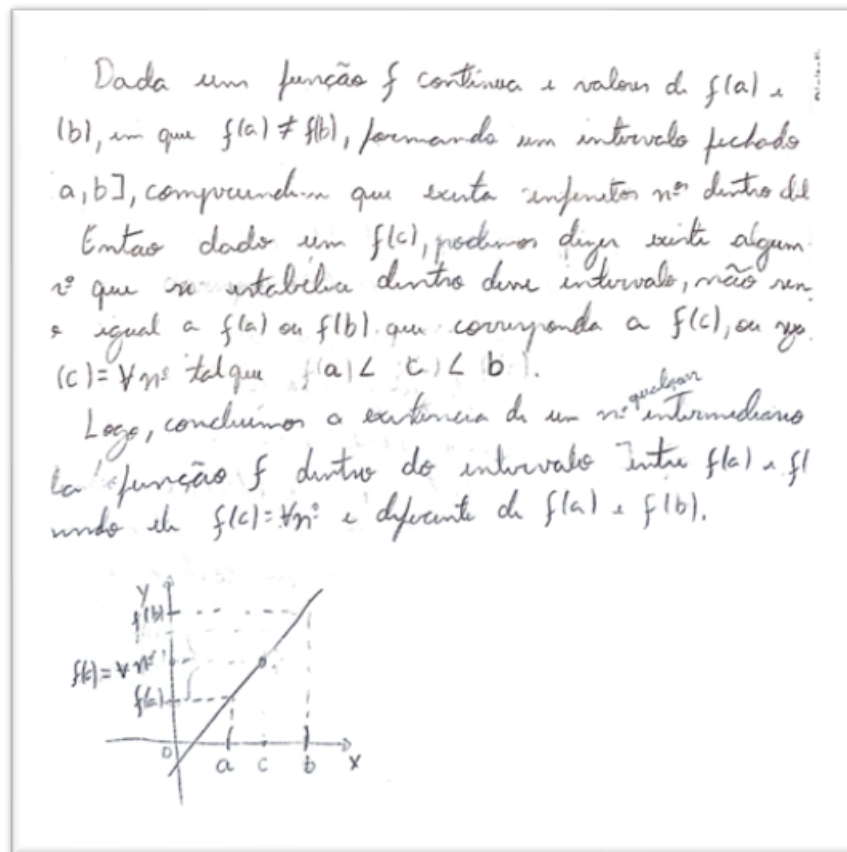 Dada um função f contínua e valores de f(a) e
(b), em que f(a) ≠ f(b), formando um intervalo fechado
a, b], compreende-se que exista infinitos nºs dentro del
Entao dado um f(c), podemos dizer existe algum
nº que se estabeleça dentro desse intervalo, não sen
o igual a f(a) ou f(b) que corresponda a f(c), ou seja
(c) = ∀ nº tal que f(a) < c) < b).
Logo, concluímos a existência de um nº qualquer intermediário
da função f dentro do intervalo entre f(a) e f(
endo ele f(c) = ∀nº e diferente de f(a) e f(b).
y
f(b)
f(c) = ∀ nº
f(a)
0 a c b x